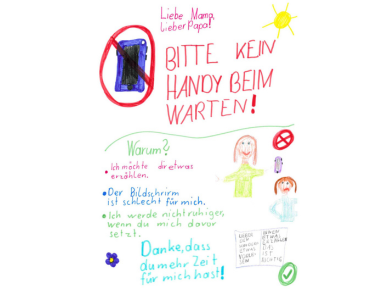 Liebe Mama,
lieber Papa!
BITTE KEIN
HANDY BEIM
WARTEN!
Warum?
• Ich möchte dir etwas
erzählen.
• Der Bildschrirm
ist schlecht für mich.
• Ich werde nicht ruhiger,
wenn du mich davor
setzt.
Danke, dass
du mehr Zeit
für mich hast!